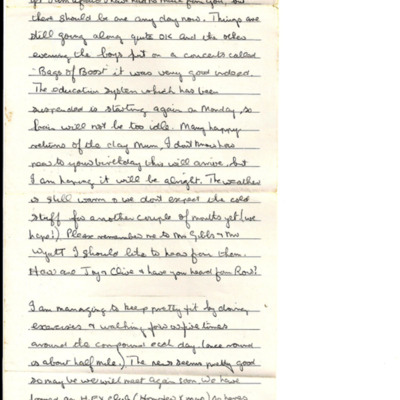 there should be one any day now. Things are
still going along quite OK and the other
evening the boys put on a concert called
"Bags of Boost" it was very good indeed.
The education system which has been
suspended is starting again on Monday, so
brain will not be too idle. Many happy
returns of the day Mum, I don't know how
near to your birthday this will arrive, but
I am hoping it will be alright. The weather
is still warm & we don't expect the cold
stuff for another couple of months yet (we
hope!) Please remember me to Mrs Gibbs & Mrs
Wyatt I should like to hear from them.
How are Joy & Clive & have you heard from Ron?
I am managing to keep pretty fit by doing
exercises & walking four or five times
around the compound each day (once round
is about half mile.) The news seems pretty good
so maybe we will meet again soon. We have
formed an club